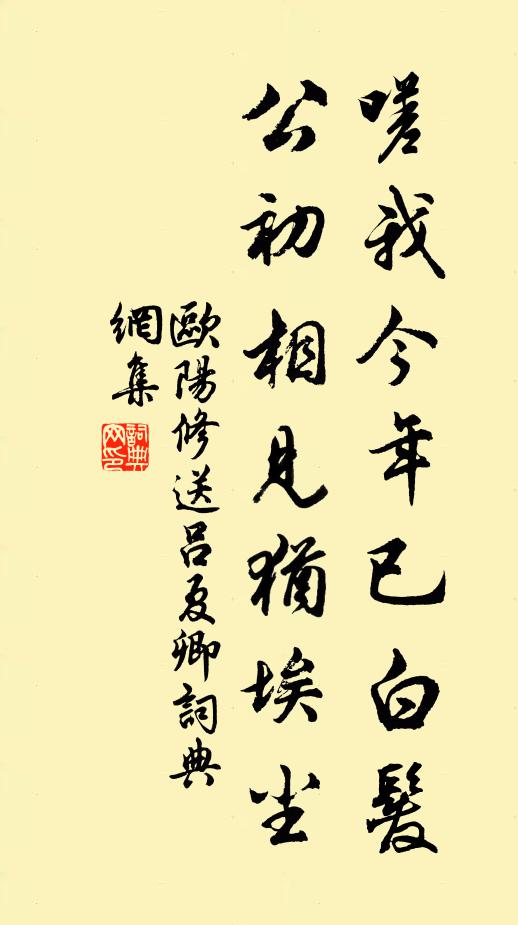 嗟我今年已白髮
公初相見猶埃尘
歐陽修送呂夏卿詞典
網集
詞典網印